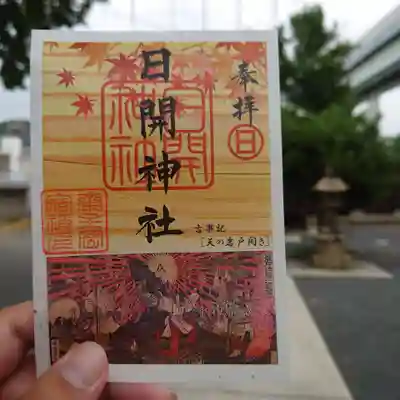 奉拝
日
日開神社
日開
神社
古事記
［天の岩戸開き］